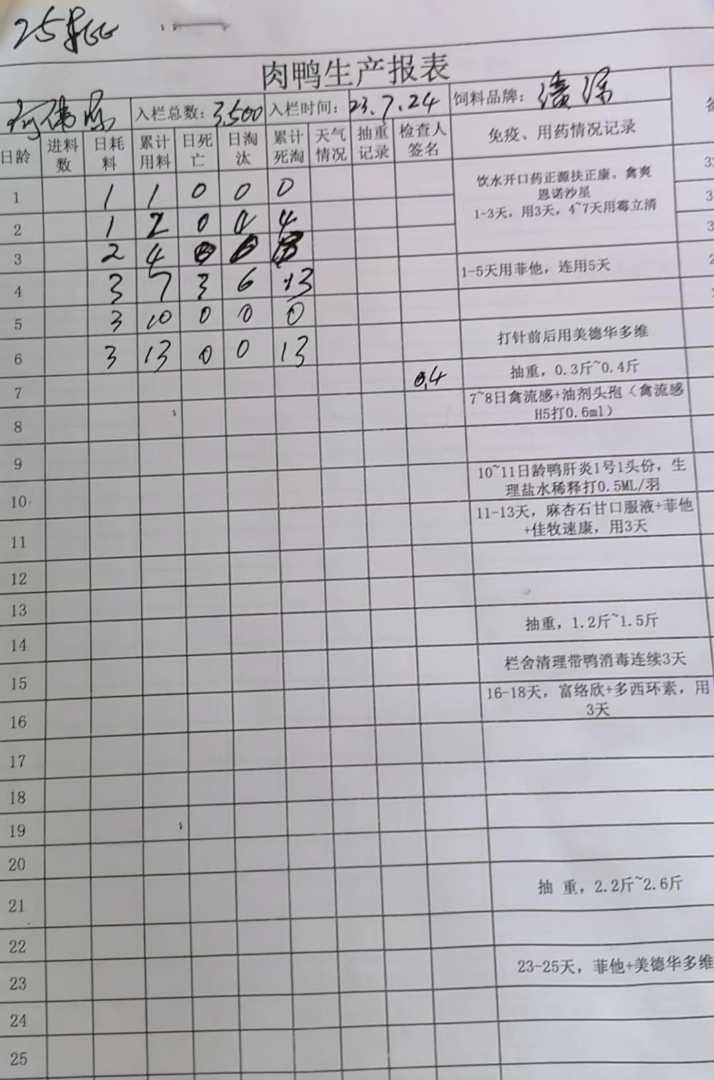 肉鸭生产报表
入栏总数: 3500 入栏时间: 23.7.24 饲料品牌:
日龄 进料数 日耗料 累计用料 日死亡 日淘汰 累计死淘 天气情况 抽重记录 检查人签名 免疫、用药情况记录
1 1 1 0 0 0 饮水开口药正源扶正康、禽爽
恩诺沙星
1-3天，用3天，4~7天用霉立清
2 1 2 0 4 4
3 2 4
4 3 7 3 6 13 1-5天用菲他，连用5天
5 3 10 0 0 0
6 3 13 0 0 13 打针前后用美德华多维
7 0.4 抽重，0.3斤~0.4斤
8 7~8日禽流感+油剂头孢（禽流感
H5打0.6ml）
9
10 10~11日龄鸭肝炎1号1头份，生
理盐水稀释打0.5ML/羽
11 11-13天，麻杏石甘口服液+菲他
+佳牧速康，用3天
12
13
14 抽重，1.2斤~1.5斤
15 栏舍清理带鸭消毒连续3天
16 16-18天，富络欣+多西环素，用
3天
17
18
19
20
21 抽 重，2.2斤~2.6斤
22
23 23-25天，菲他+美德华多维
24
25